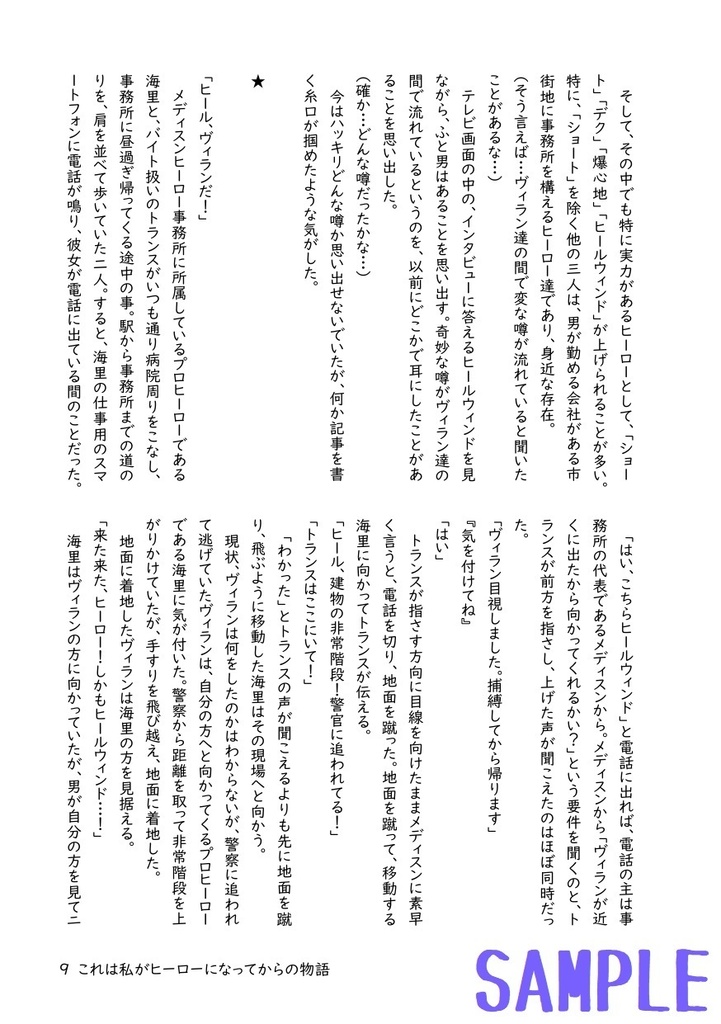 そして、その中でも特に実力があるヒーローとして、「ショー
ト」「デク」「爆心地」「ヒールウィンド」が上げられることが多い。
特に、「ショート」を除く他の三人は、男が勤める会社がある市
街地に事務所を構えるヒーロー達であり、身近な存在。
(そう言えば…ヴィラン達の間で変な噂が流れていると聞いた
ことがあるな…)
テレビ画面の中の、インタビューに答えるヒールウィンドを見
ながら、ふと男はあることを思い出す。奇妙な噂がヴィラン達の
間で流れているというのを、以前にどこかで耳にしたことがあ
ることを思い出した。
(確か…どんな噂だったかな…)
今はハッキリどんな噂か思い出せないでいたが、何か記事を書
く糸口が掴めたような気がした。
★
「ヒール、ヴィランだ!」
メディスンヒーロー事務所に所属しているプロヒーローである
海里と、バイト扱いのトランスがいつも通り病院周りをこなし、
事務所に昼過ぎ帰ってくる途中の事。駅から事務所までの道の
りを、肩を並べて歩いていた二人。すると、海里の仕事用のスマ
ートフォンに電話が鳴り、彼女が電話に出ている間のことだった。
「はい、こちらヒールウィンド」と電話に出れば、電話の主は事
務所の代表であるメディスンから。メディスンから「ヴィランが近
くに出たから向かってくれるかい?」という要件を聞くのと、ト
ランスが前方を指さし、上げた声が聞こえたのはほぼ同時だっ
た。
「ヴィラン目視しました。捕縛してから帰ります」
『気を付けてね』
「はい」
トランスが指さす方向に目線を向けたままメディスンに素早
く言うと、電話を切り、地面を蹴った。地面を蹴って、移動する
海里に向かってトランスが伝える。
「ヒール、建物の非常階段!警官に追われてる!」
「トランスはここにいて!」
「わかった」とトランスの声が聞こえるよりも先に地面を蹴
り、飛ぶように移動した海里はその現場へと向かう。
現状、ヴィランは何をしたのかはわからないが、警察に追われ
て逃げていたヴィランは、自分の方へと向かってくるプロヒーロー
である海里に気が付いた。警察から距離を取って非常階段を上
がりかけていたが、手すりを飛び越え、地面に着地した。
地面に着地したヴィランは海里の方を見据える。
「来た来た、ヒーロー!しかもヒールウィンド…!」
海里はヴィランの方に向かっていたが、男が自分の方を見てニ
9 これは私がヒーローになってからの物語
SAMPLE